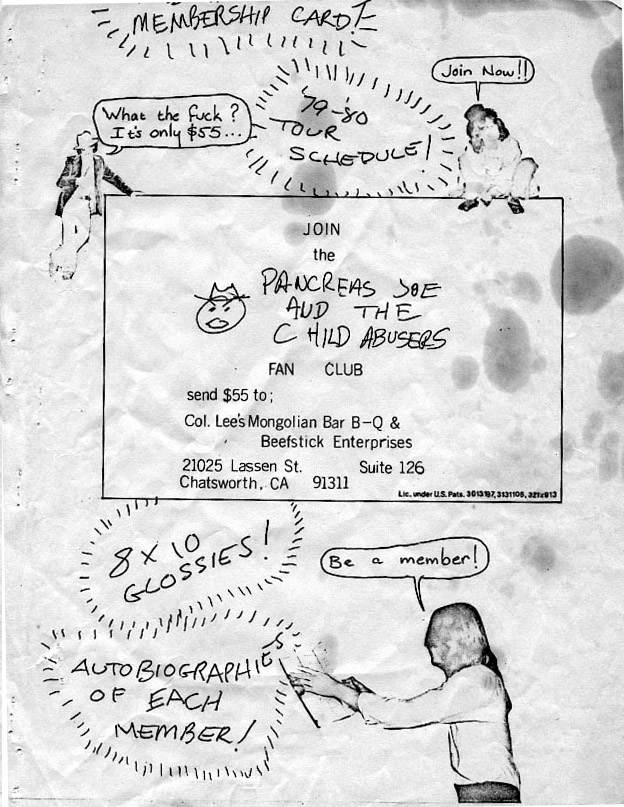 MEMBERSHIP CARD!
Join Now!!
'79-'80
TOUR
SCHEDULE!
What the fuck?
It's only $55...
JOIN
the
PANCREAS JOE
AND THE
CHILD ABUSERS
FAN CLUB
send $55 to;
Col. Lee's Mongolian Bar B-Q &
Beefstick Enterprises
21025 Lassen St. Suite 126
Chatsworth, CA 91311
Lic. under U.S. Pats. 3013197, 3131106,
8 X 10
GLOSSIES!
Be a member!
AUTOBIOGRAPHIES
OF EACH
MEMBER!